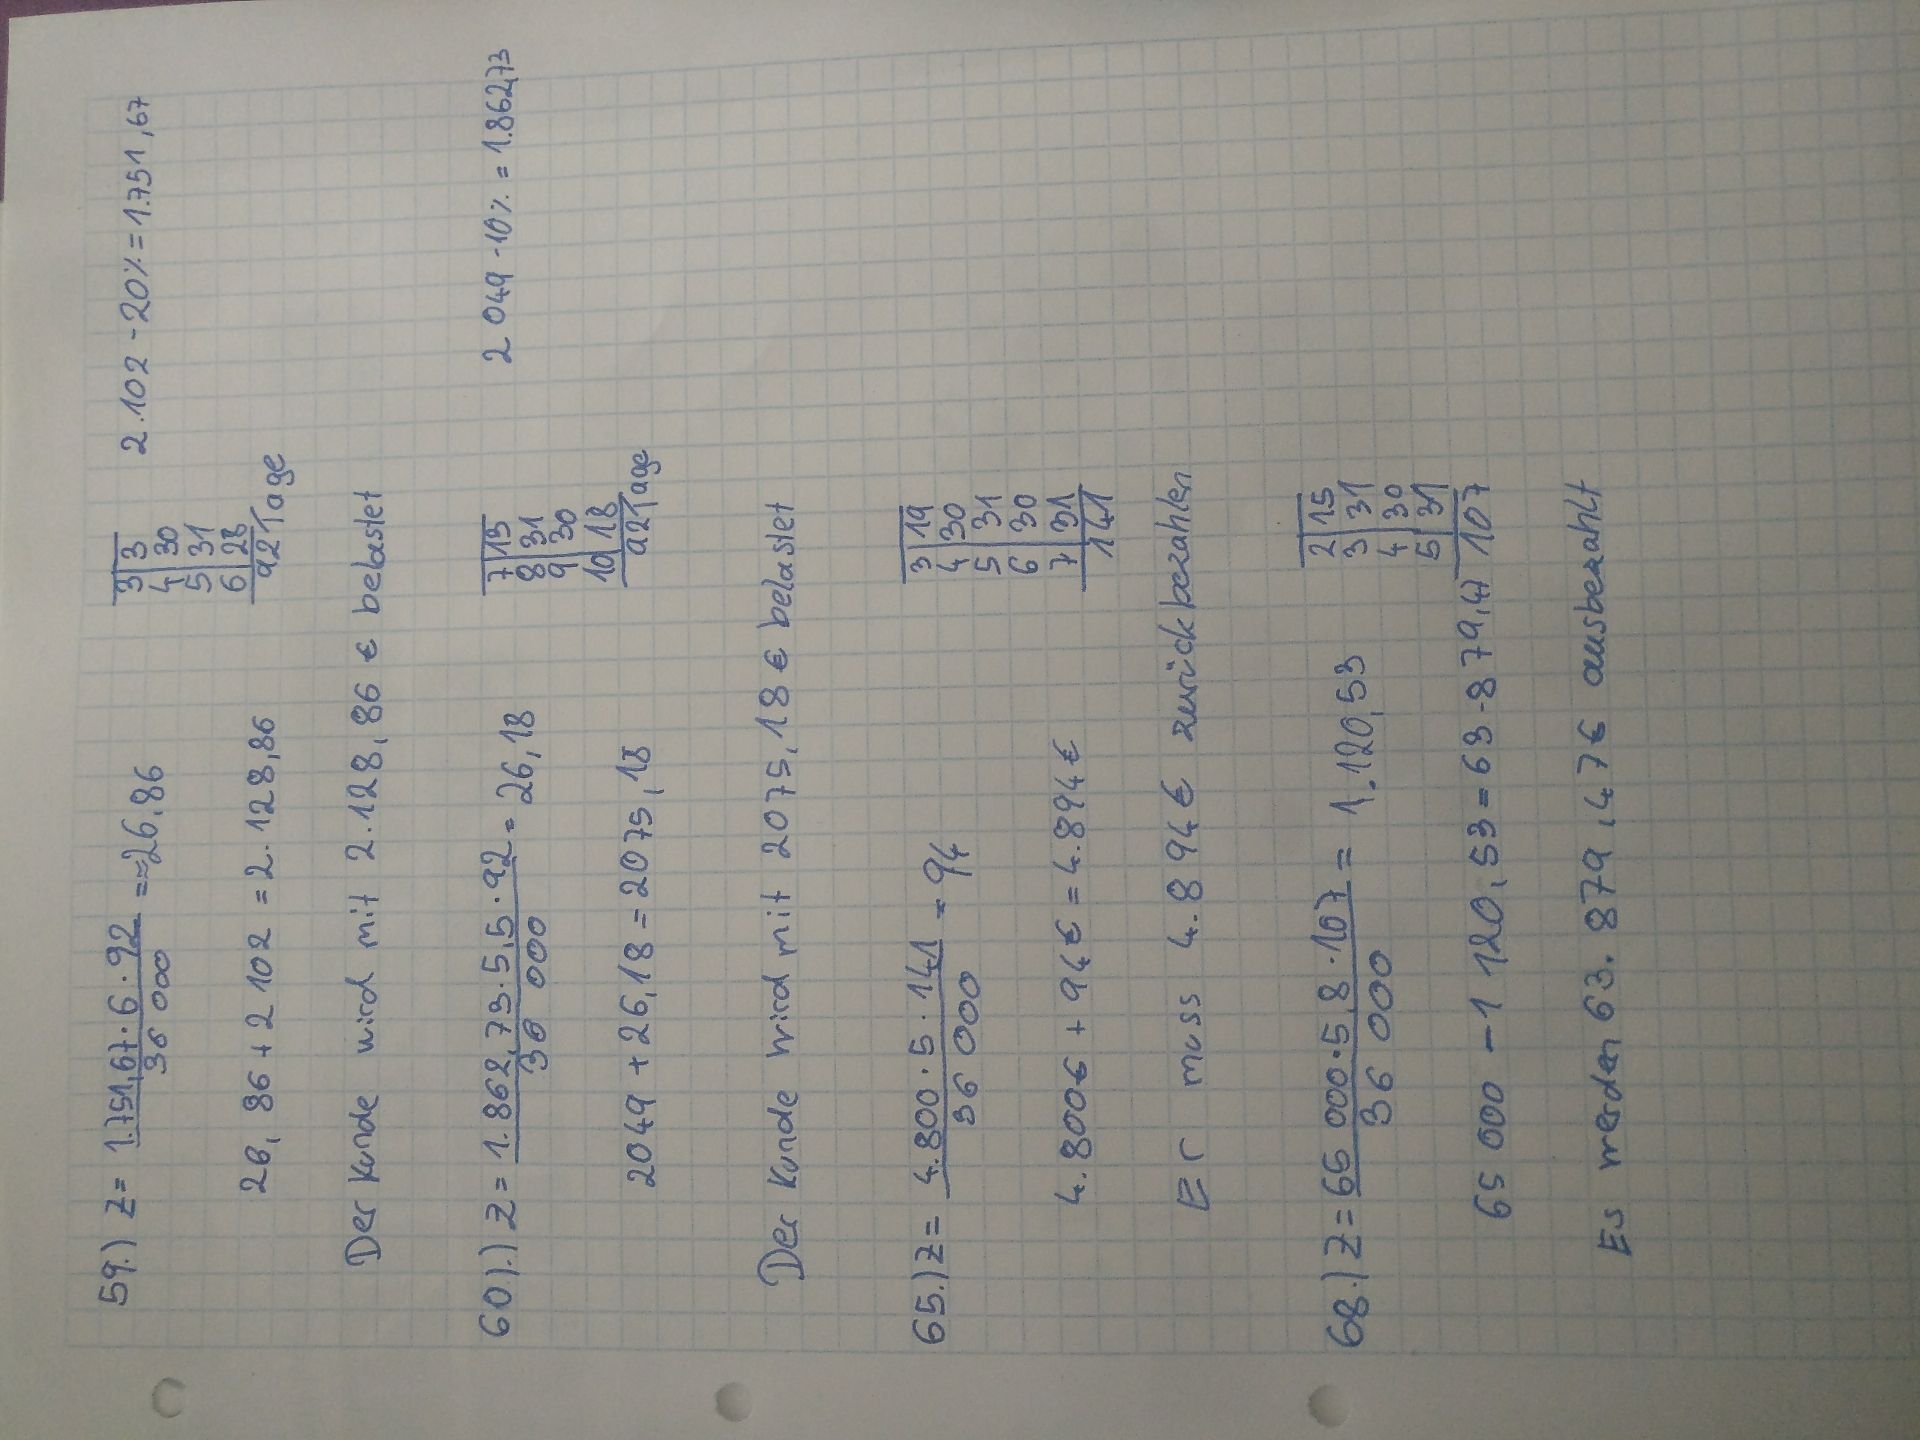 59.) Z = 1.751,67 · 6 · 92 = ≈ 26,86
36 000
3 | 3
4 | 30
5 | 31
6 | 28
92 Tage
2.102 - 20% = 1.751,67
26,86 + 2 102 = 2.128,86
Der Kunde wird mit 2.128,86 € belastet
60.).) Z = 1.862,73 · 5,5 · 92 = 26,18
36 000
7 | 13
8 | 31
9 | 30
10 | 18
92 Tage
2 049 - 10% = 1.862,73
2049 + 26,18 = 2075,18
Der Kunde wird mit 2075,18 € belastet
65.) Z = 4.800 · 5 · 141 = 94
36 000
3 | 19
4 | 30
5 | 31
6 | 30
7 | 31
141
4.800€ + 94€ = 4.894€
Er muss 4.894€ zurückbezahlen
68.) Z = 65 000 · 5,8 · 107 = 1.120,53
36 000
2 | 15
3 | 31
4 | 30
5 | 31
107
65 000 - 1 120,53 = 63.879,47
Es werden 63.879,47€ ausbezahlt